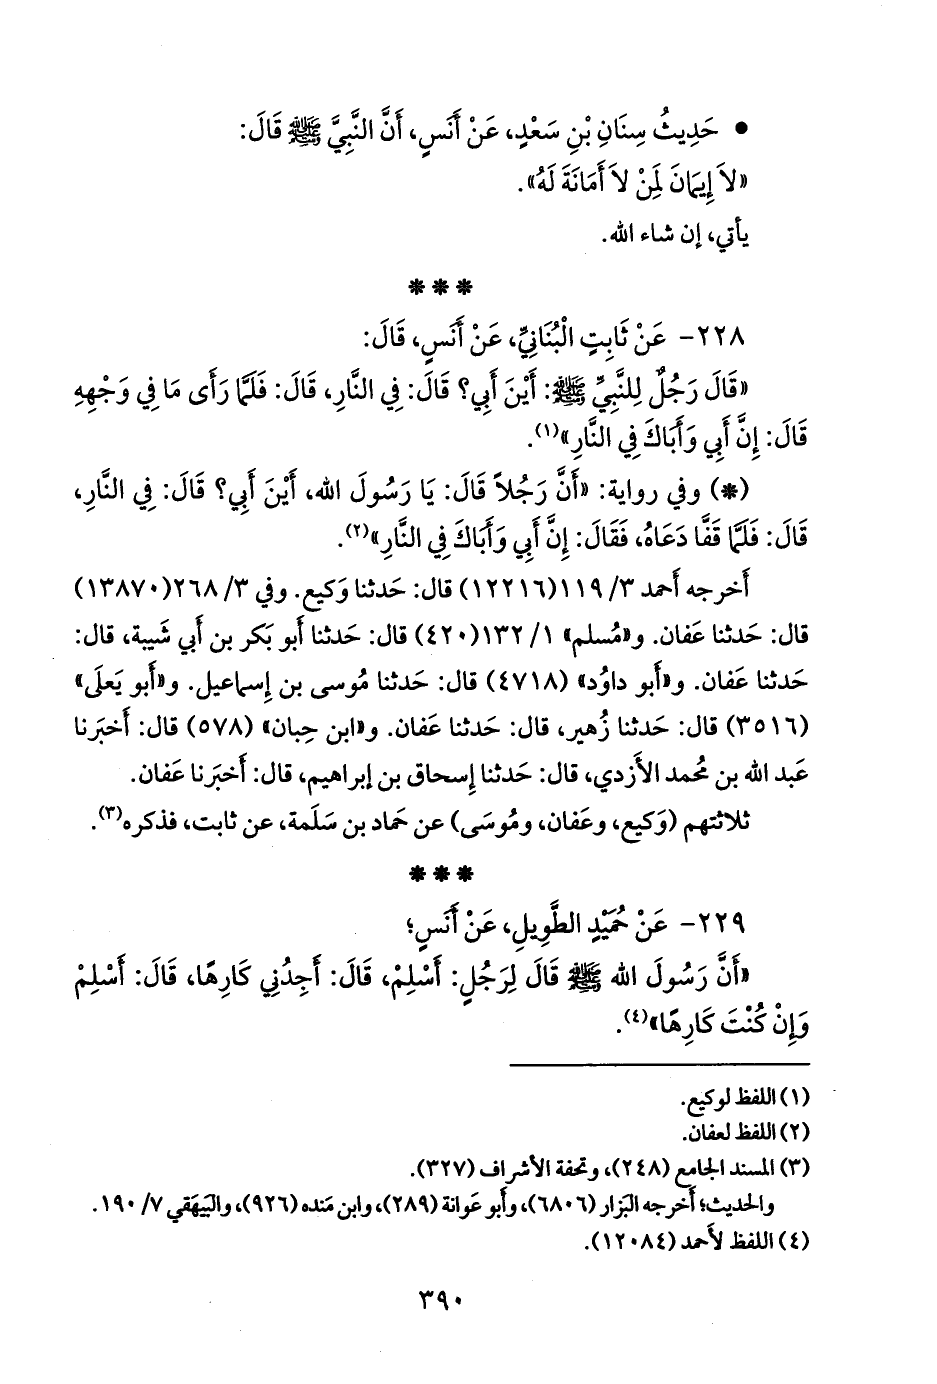 • حَدِيثُ سِنَانِ بْنِ سَعْدٍ، عَنْ أَنَسٍ، أَنَّ النَّبِيَّ ﷺ قَالَ:
«لاَ إِيمَانَ لِمَنْ لاَ أَمَانَةَ لَهُ».
يأتي، إن شاء الله.
***
٢٢٨- عَنْ ثَابِتٍ الْبُنَانِيِّ، عَنْ أَنَسٍ، قَالَ:
«قَالَ رَجُلٌ لِلنَّبِيِّ ﷺ: أَيْنَ أَبِي؟ قَالَ: فِي النَّارِ، قَالَ: فَلَمَّا رَأَى مَا فِي وَجْهِهِ
قَالَ: إِنَّ أَبِي وَأَبَاكَ فِي النَّارِ»(١).
(*) وفي رواية: «أَنَّ رَجُلاً قَالَ: يَا رَسُولَ الله، أَيْنَ أَبِي؟ قَالَ: فِي النَّارِ،
قَالَ: فَلَمَّا قَفَّا دَعَاهُ، فَقَالَ: إِنَّ أَبِي وَأَبَاكَ فِي النَّارِ»(٢).
أخرجه أحمد ٣/ ١١٩(١٢٢١٦) قال: حَدثنا وَكيع. وفي ٣/ ٢٦٨(١٣٨٧٠)
قال: حَدثنا عَفان. و«مُسلم» ١/ ١٣٢(٤٢٠) قال: حَدثنا أَبو بَكر بن أَبي شَيبة، قال:
حَدثنا عَفان. و«أَبو داوُد» (٤٧١٨) قال: حَدثنا مُوسى بن إِسماعيل. و«أَبو يَعلَى»
(٣٥١٦) قال: حَدثنا زُهير، قال: حَدثنا عَفان. و«ابن حِبان» (٥٧٨) قال: أَخبَرنا
عَبد الله بن مُحمد الأَزدي، قال: حَدثنا إِسحاق بن إِبراهيم، قال: أَخبَرنا عَفان.
ثلاثتهم (وَكيع، وعَفان، ومُوسَى) عن حَماد بن سَلَمة، عن ثابت، فذكره(٣).
***
٢٢٩- عَنْ حُمَيْدٍ الطَّوِيلِ، عَنْ أَنَسٍ؛
«أَنَّ رَسُولَ الله ﷺ قَالَ لِرَجُلٍ: أَسْلِمْ، قَالَ: أَجِدُنِي كَارِهًا، قَالَ: أَسْلِمْ
وَإِنْ كُنْتَ كَارِهًا»(٤).
(١) اللفظ لوكيع.
(٢) اللفظ لعفان.
(٣) المسند الجامع (٢٤٨)، وتحفة الأشراف (٣٢٧).
والحديث؛ أَخرجه البَزار (٦٨٠٦)، وأَبو عَوانة (٢٨٩)، وابن مَنده (٩٢٦)، والبَيهَقي ٧/ ١٩٠.
(٤) اللفظ لأَحمد (١٢٠٨٤).
٣٩٠